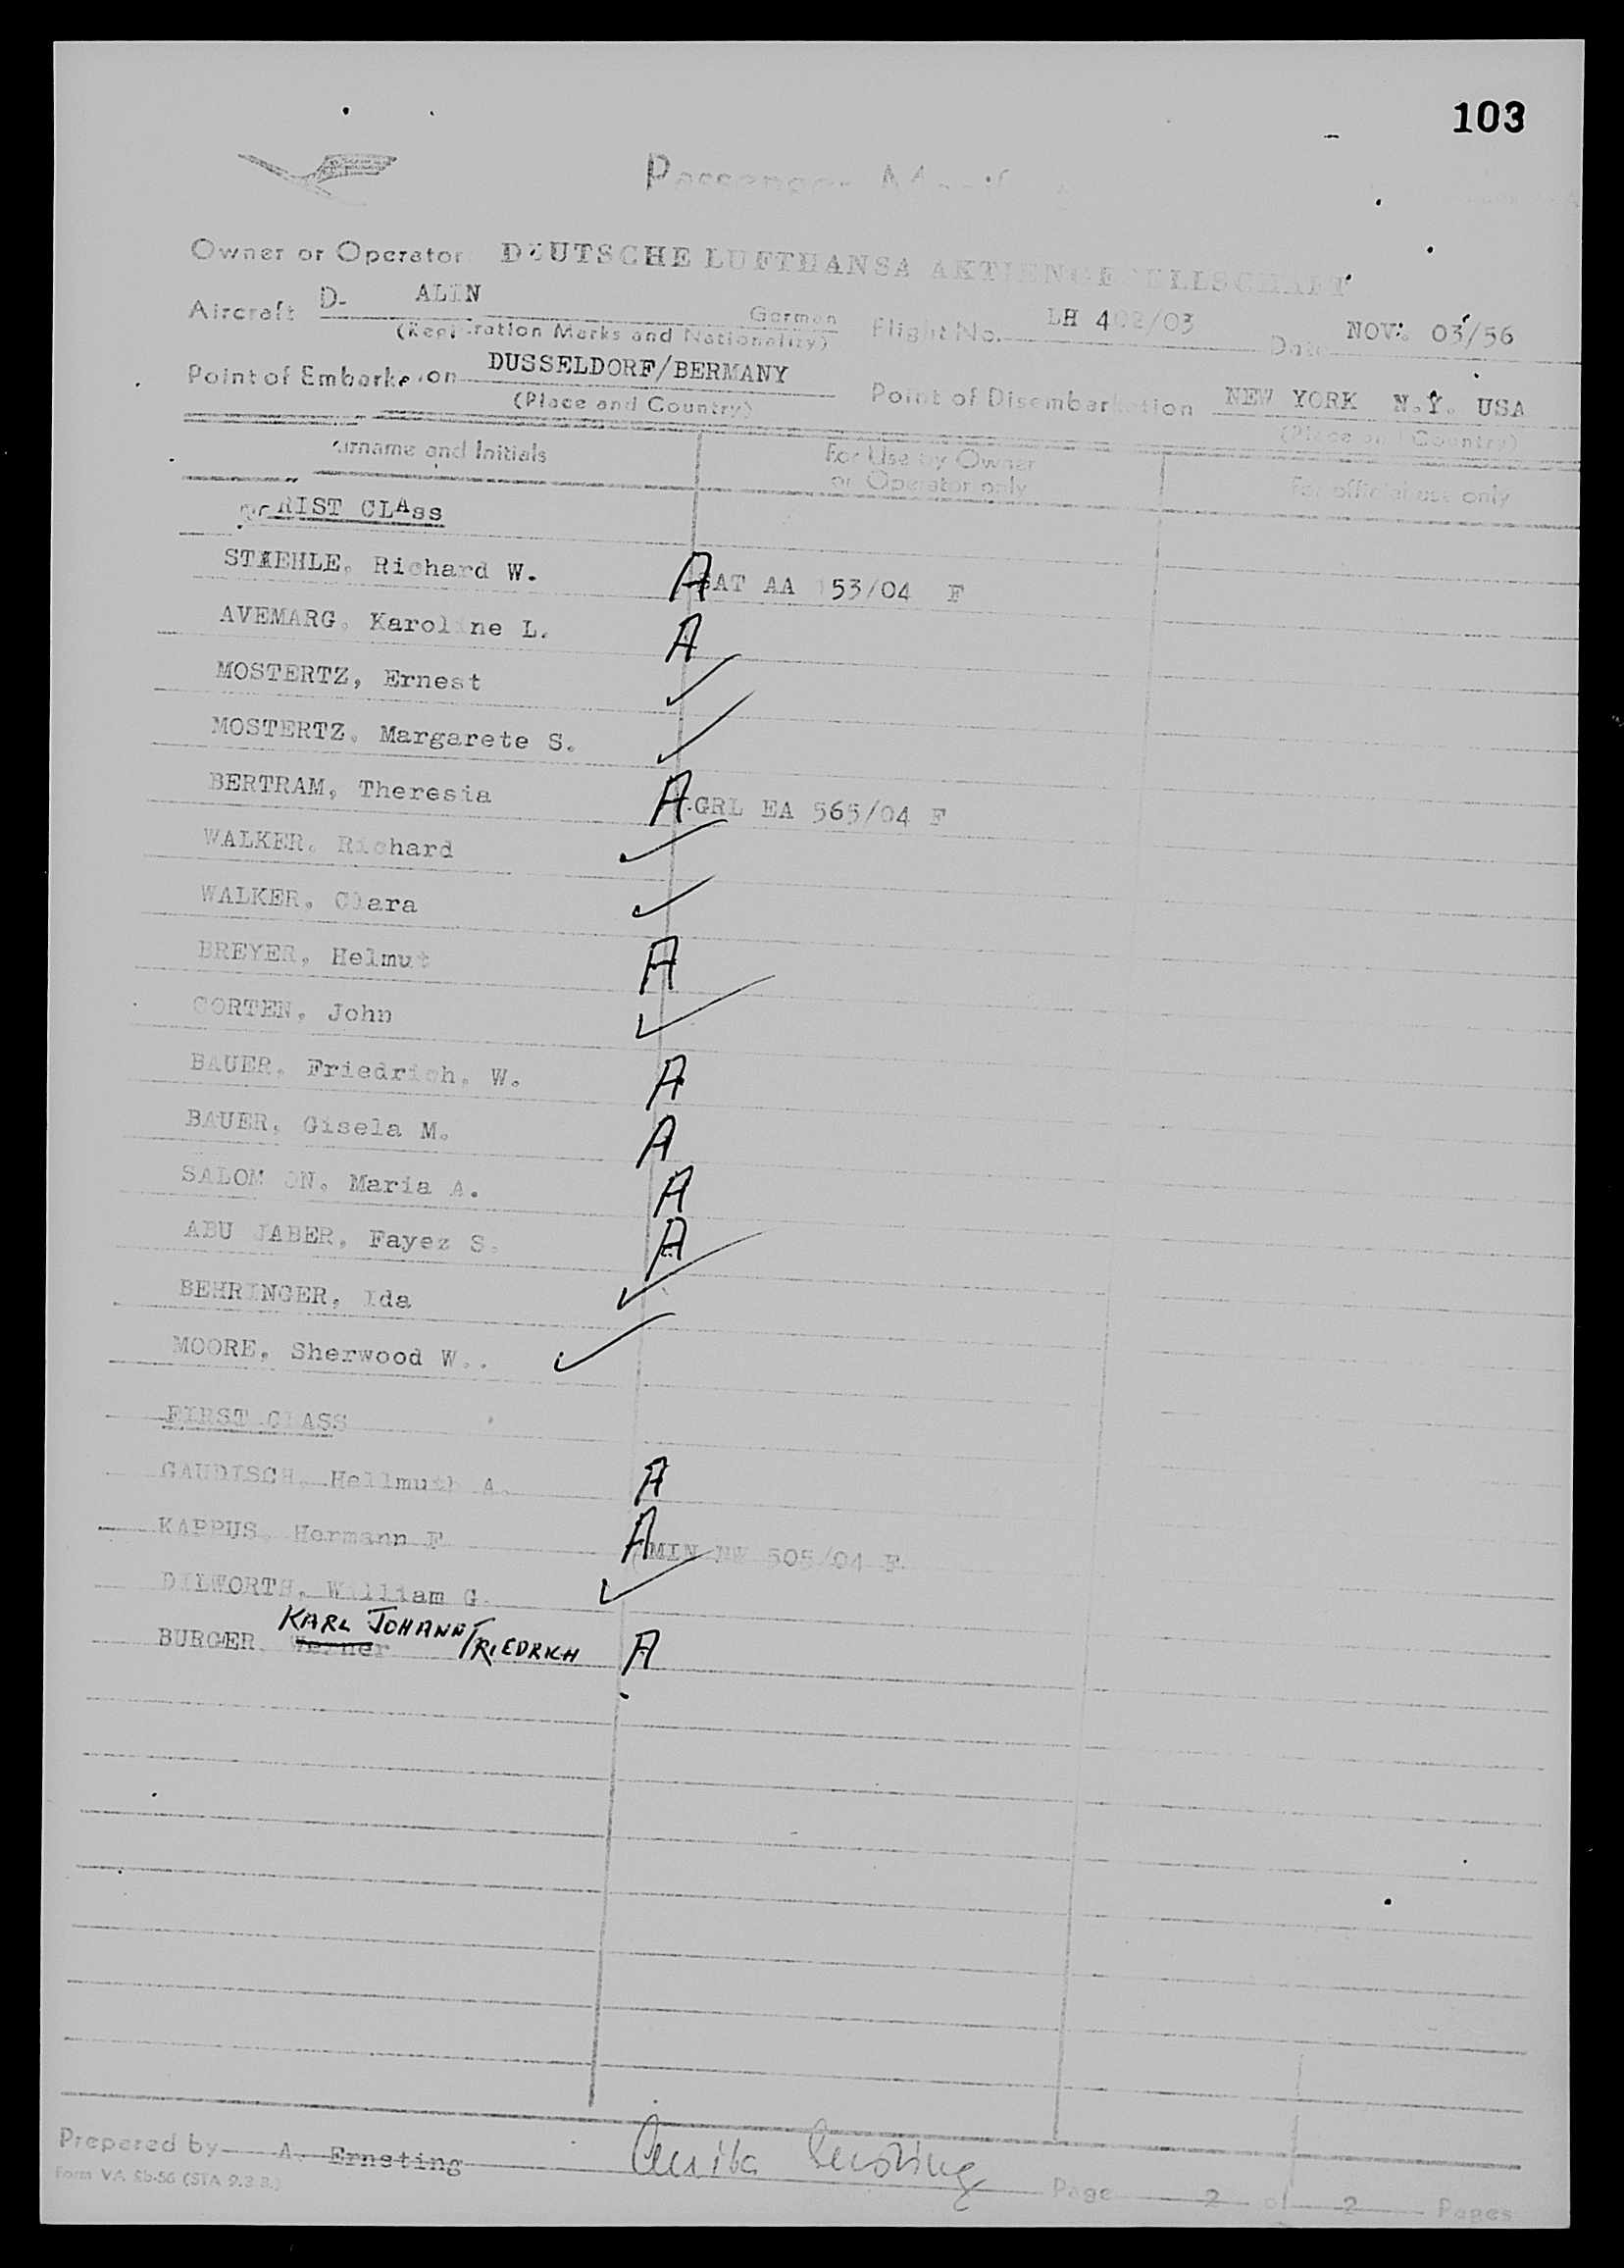 103
Passenger Manif
Owner or Operator DEUTSCHE LUFTHANSA AKTIENGESELLSCHAFT
Aircraft D- ALIN German Flight No. LH 402/03 Date NOV. 03/56
(Registration Marks and Nationality)
Point of Embarkation DUSSELDORF/BERMANY Point of Disembarkation NEW YORK N.Y. USA
(Place and Country) (Place and Country)
urname and Initials For Use by Owner or Operator only For official use only
RIST CLAss
STAEHLE, Richard W. A SAT AA 153/04 F
AVEMARG, Karoline L. A
MOSTERTZ, Ernest ✓
MOSTERTZ, Margarete S. ✓
BERTRAM, Theresia A GRL EA 565/04 F
WALKER, Richard ✓
WALKER, Clara ✓
BREYER, Helmut A
CORTEN, John ✓
BAUER, Friedrich, W. A
BAUER, Gisela M. A
SALOM ON, Maria A. A
ABU JABER, Fayez S. A
BEHRINGER, Ida ✓
MOORE, Sherwood W.. ✓
FIRST CLASS
GAUDISCH, Hellmuth A. A
KAPPUS, Hermann F A MIN NW 505/04 F
DILWORTH, William G. ✓
KARL JOHANN
BURGER, Werner FRIEDRICH A
Prepared by A. Ernsting Anita Ernsting
Form VA 8b-56 (STA 9.3 B.) Page 2 of 2 Pages